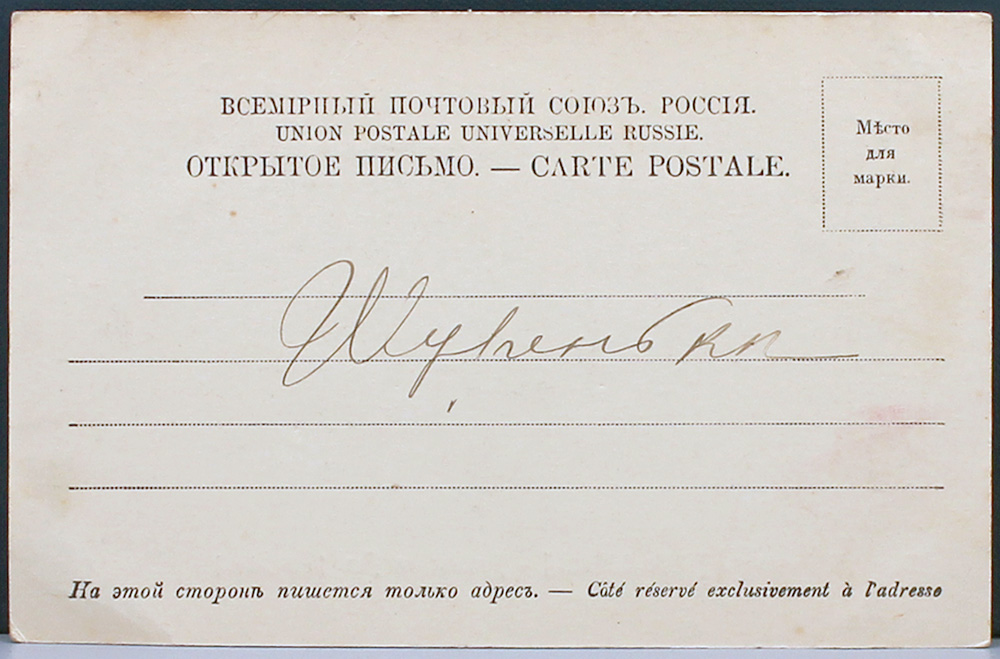 ВСЕМІРНЫЙ ПОЧТОВЫЙ СОЮЗЪ. РОССІЯ.
UNION POSTALE UNIVERSELLE RUSSIE.
ОТКРЫТОЕ ПИСЬМО. — CARTE POSTALE.
Мѣсто
для
марки.
На этой сторонѣ пишется только адресъ. — Côté réservé exclusivement à l'adresse